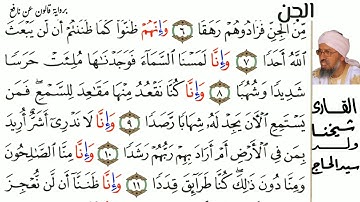 برواية قالون عن نافع
الجن
مِّنَ اَلْجِنِّ فَزَادُوهُمْ رَهَقًا ٦ وَإِنَّهُمْ ظَنُّوا كَمَا ظَنَنتُمُ أَن لَّن يَبْعَثَ
اَللَّهُ أَحَدًا ٧ وَإِنَّا لَمَسْنَا اَلسَّمَآءَ فَوَجَدْنَٰهَا مُلِئَتْ حَرَسًا
شَدِيدًا وَشُهُبًا ٨ وَإِنَّا كُنَّا نَقْعُدُ مِنْهَا مَقَٰعِدَ لِلسَّمْعِ فَمَنْ
يَسْتَمِعِ اِلْأٓنَ يَجِدْ لَهُۥ شِهَابًا رَّصَدًا ٩ وَإِنَّا لَا نَدْرِىٓ أَشَرٌّ أُرِيدَ
بِمَن فِى اِلْأَرْضِ أَمَ أَرَادَ بِهِمْ رَبُّهُمْ رَشَدًا ١٠ وَإِنَّا مِنَّا اَلصَّٰلِحُونَ
وَمِنَّا دُونَ ذَٰلِكَ كُنَّا طَرَآئِقَ قِدَدًا ١١ وَإِنَّا ظَنَنَّآ أَن لَّن نُّعْجِزَ
القارئ
شيخنا
ولد
سيد الحاج